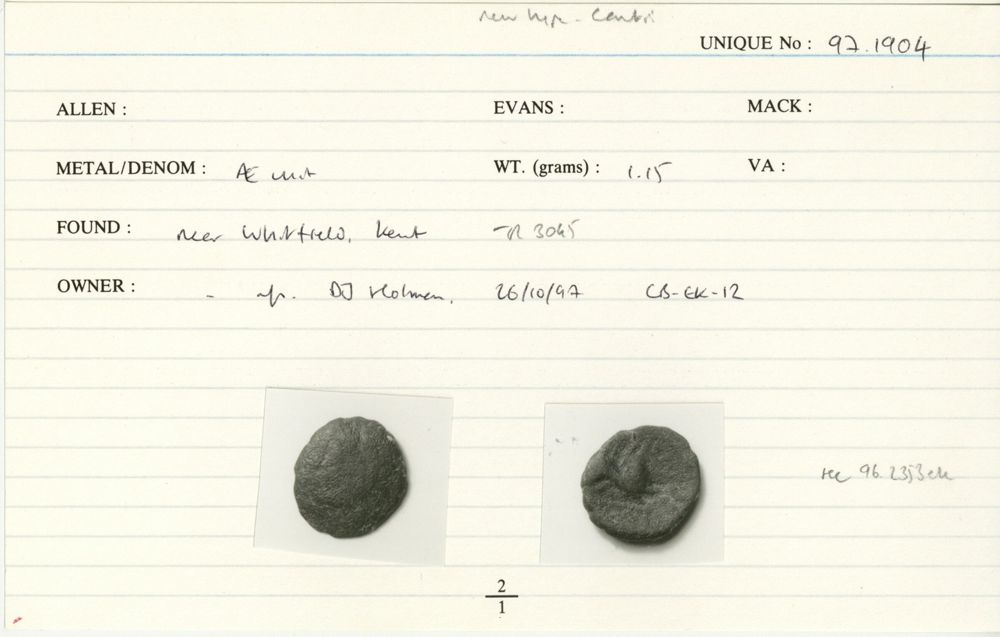 new type - Cantii
UNIQUE No : 97.1904
ALLEN : EVANS : MACK :
METAL/DENOM : Æ unit WT. (grams) : 1.15 VA :
FOUND : near Whitfield, Kent TR 3045
OWNER : - DJ Holman, 26/10/97 CB-EK-12
96.2353
2
1